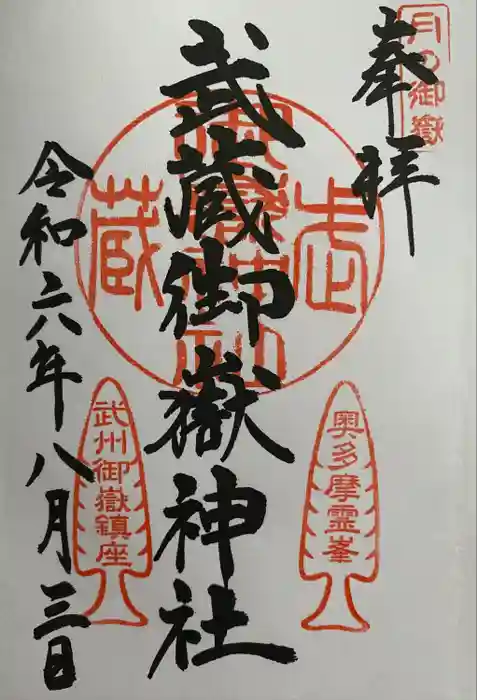 月の御嶽
奉拝
武蔵御嶽神社
武
蔵
奥多摩霊峯
武州御嶽鎮座
令和六年八月三日